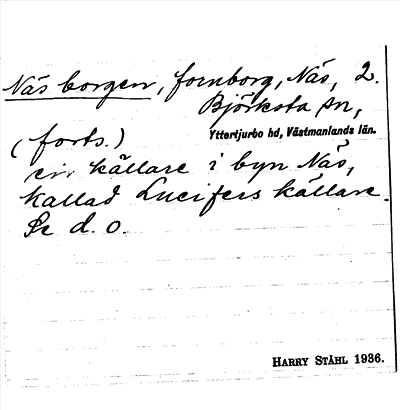 Näs borgen, fornborg, Näs, 2.
Björksta sn,
Yttertjurbo hd, Västmanlands län.
(forts.)
en källare i byn Näs,
kallad Lucifers källare.
Se d. o.
HARRY STÅHL 1936.